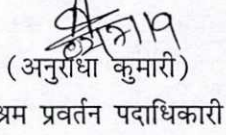 (अनुराधा कुमारी)
श्रम प्रवर्तन पदाधिकारी